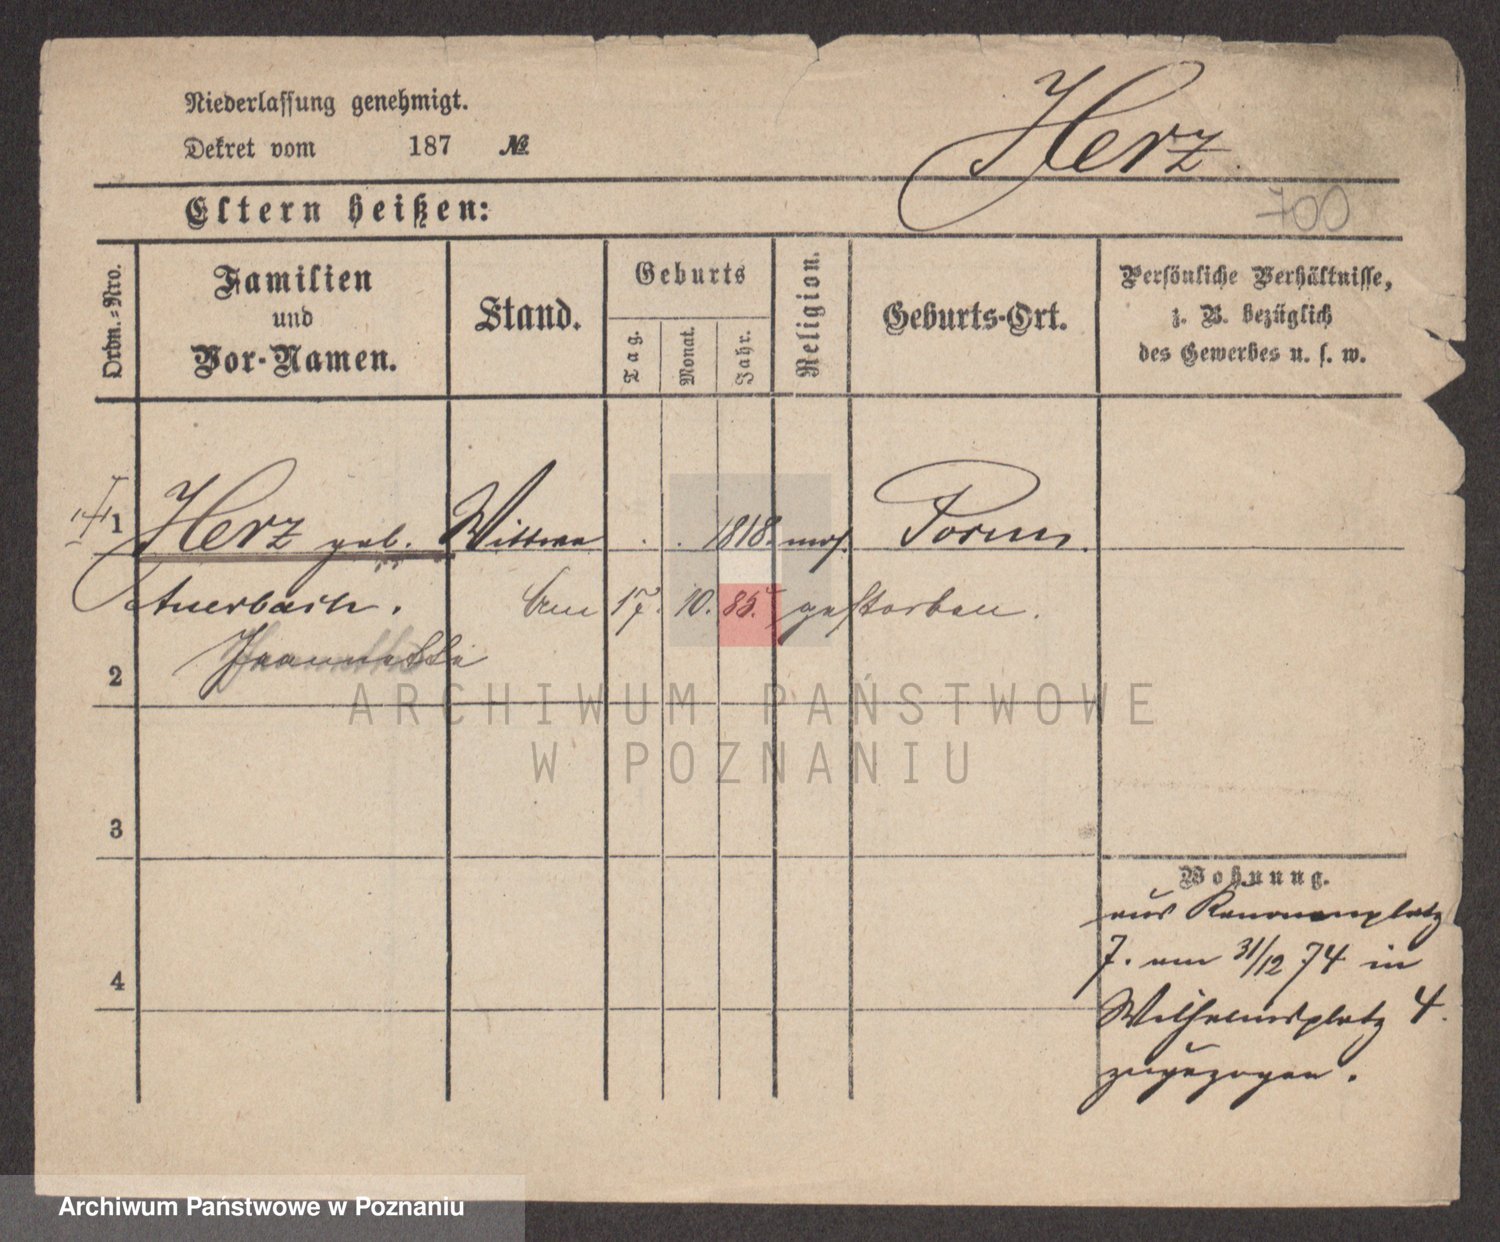 Niederlassung genehmigt.
Dekret vom 187 №
Herz.
700
Eltern heißen:
Ordn.-Nro.
Familien
und
Vor-Namen.
Stand.
Geburts
Tag.
Monat.
Jahr.
Religion.
Geburts-Ort.
Persönliche Verhältnisse,
z. B. bezüglich
des Gewerbes u. s. w.
1 Herz geb. Wittwe . . 1818. mos. Posen.
Auerbach. Am 17. 10. 85. gestorben.
Jeannette
2
3
4
Wohnung.
aus Kanonenplatz
7. am 31/12 74 in
Wilhelmsplatz 4.
zugezogen.
ARCHIWUM PAŃSTWOWE
W POZNANIU
Archiwum Państwowe w Poznaniu